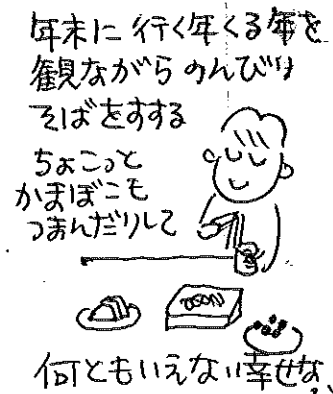 年末に行く年くる年を
観ながらのんびり
そばをすする
ちょこっと
かまぼこも
つまんだりして
何ともいえない幸せな